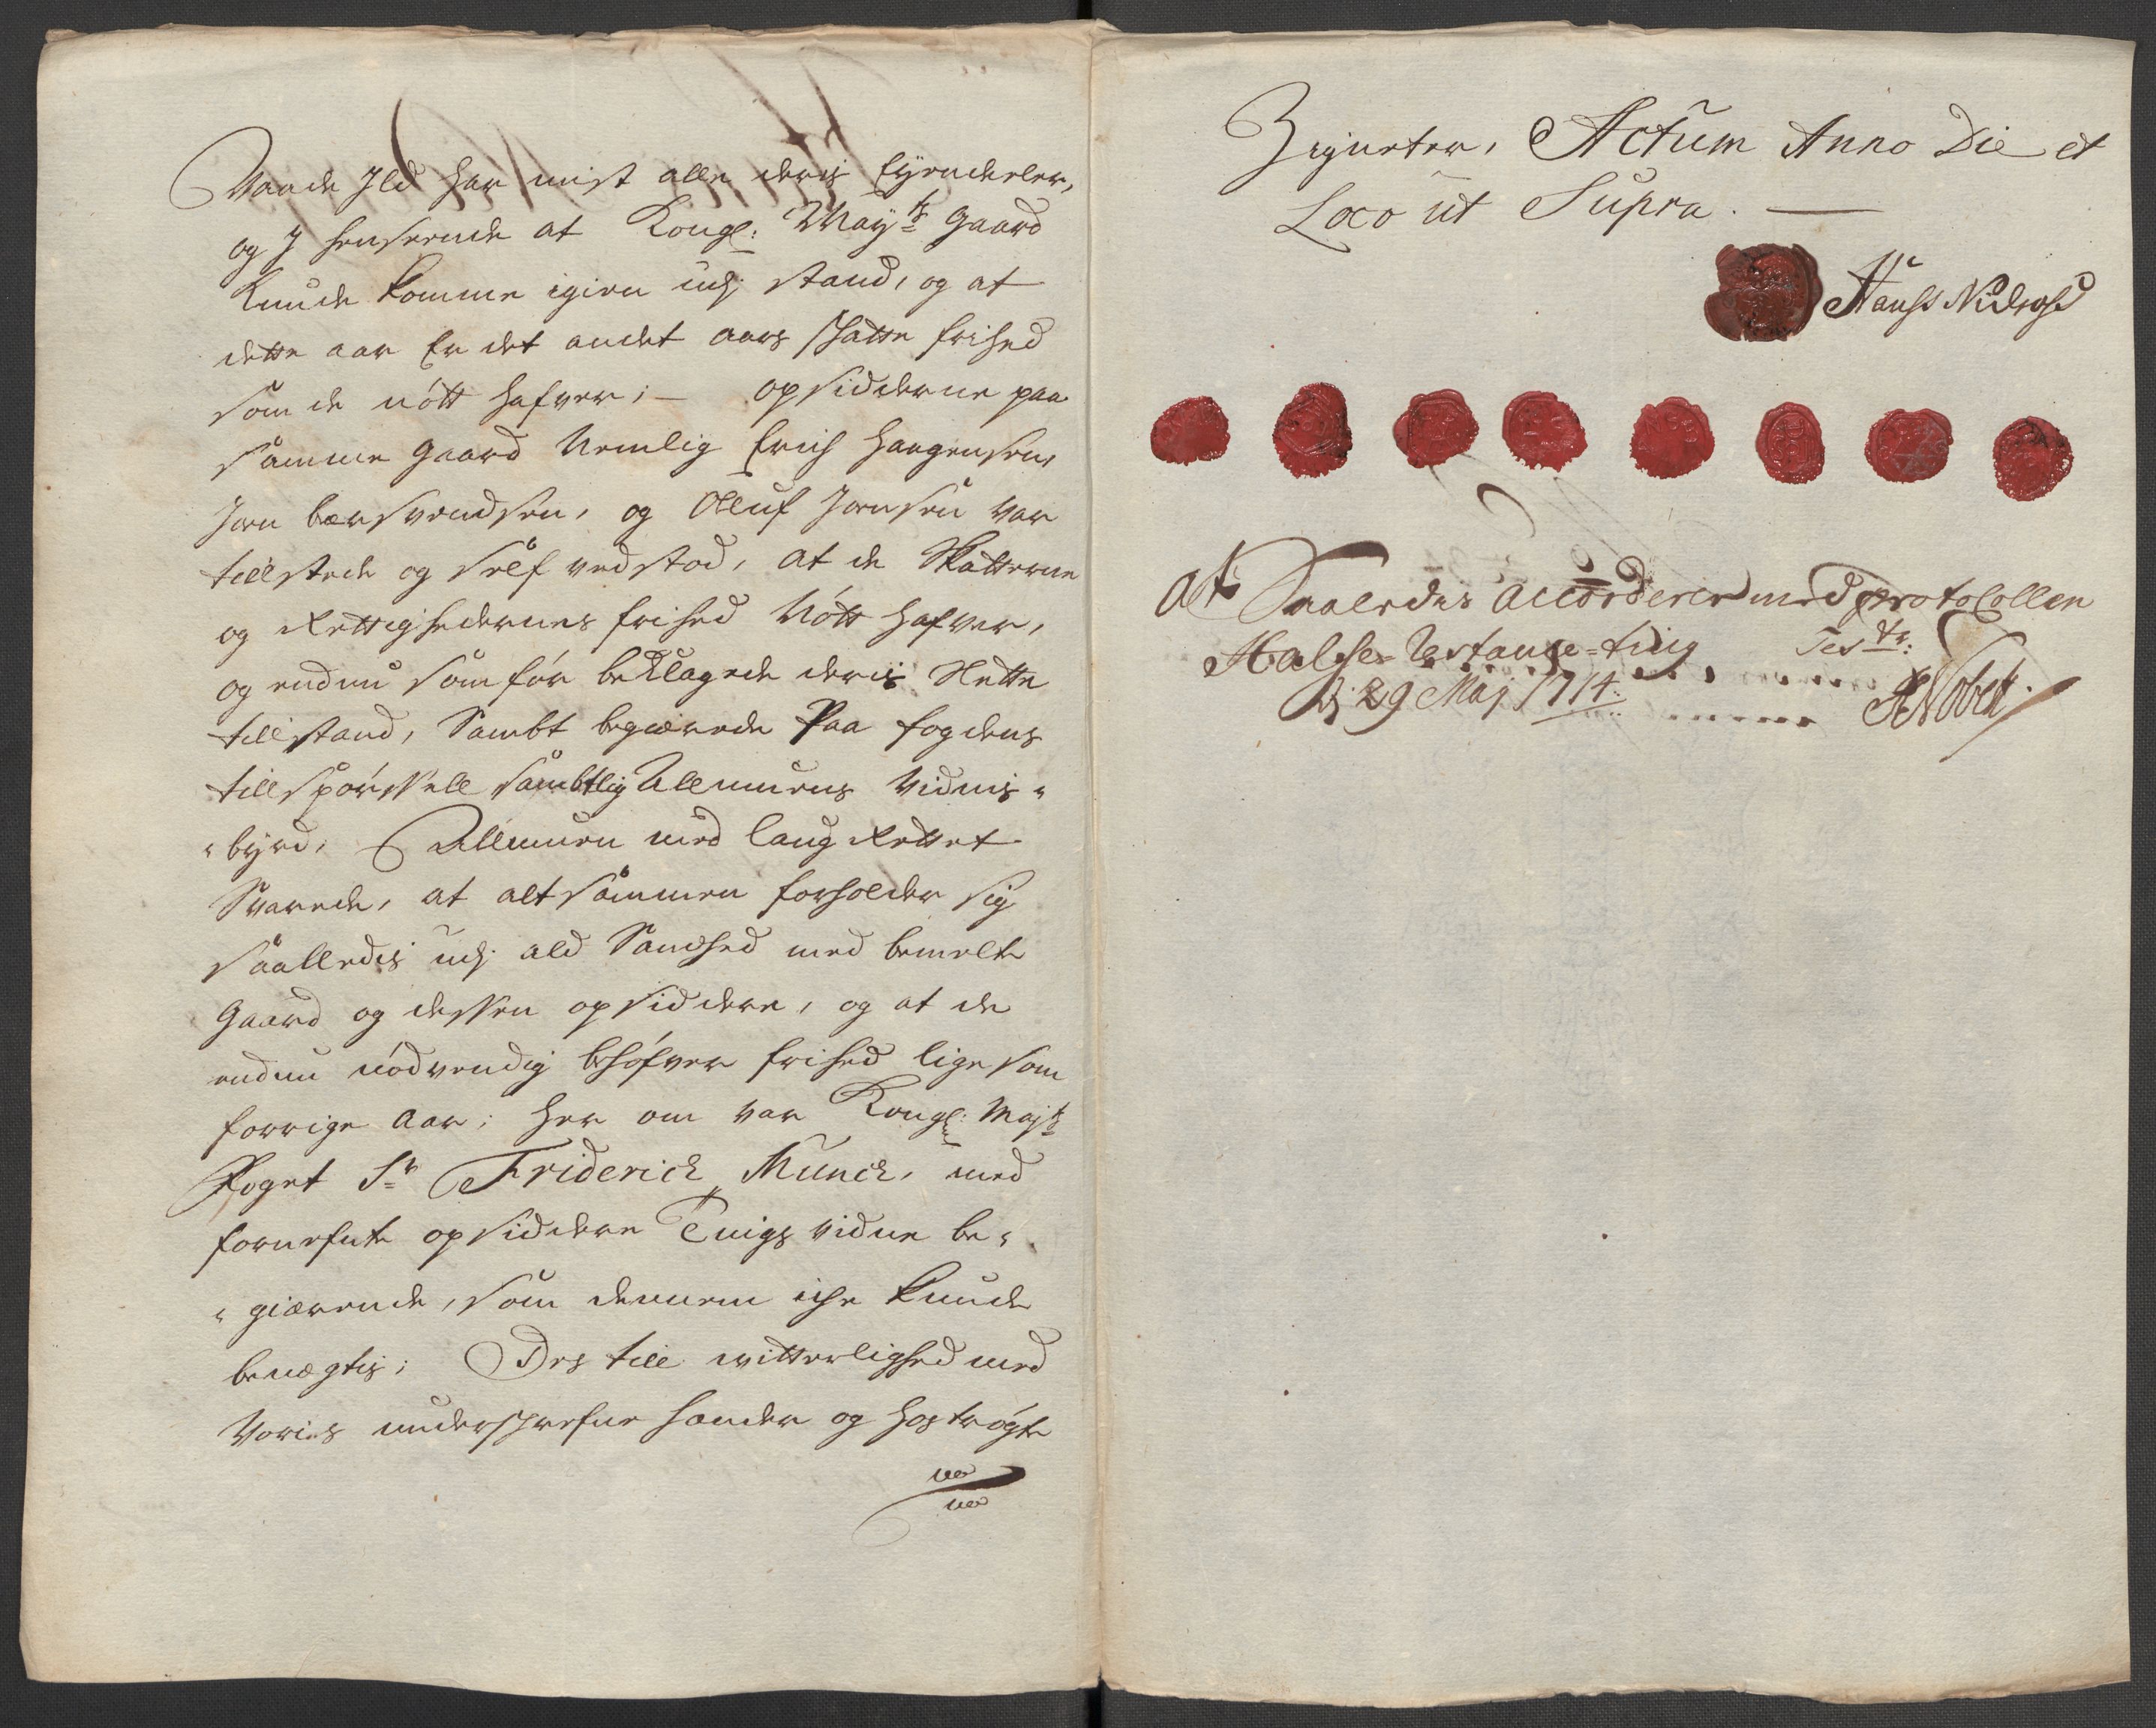 Vaade Jld har mist alle deris Eyendeler,
og J henseende at Kongl: Mayts Gaard
kunde komme igien udj stand, og at
dette aar Er det andet aars skatte frihed
som de nött hafver; — opsidderne paa
samme gaard Nemlig Erich Haagensen,
Joen Baersvendsen, og Oluf Joensen var
tillstede og self vedstod, at de Skatterne
og Rettighedernes frihed Nött hafver,
og endnu som för beklagede deris Slette
tillstand, Sambt begiærede Paa fogdens
tillspörskell sambtlig Allmuens Vidnis-
-byrd, Allmuen med laug Rettet
Svarede, at alt sammen forholder sig
saalledis udj ald Sandhed med bemelte
Gaard og dessen opsiddere, og at de
endnu nödvendig behöfver frihed lige som
forrige Aar; Her om var Kongl: Majts
Foget Sr Friderich Munch, med
fornefnte opsiddere Tings vidne be-
-giærende, som dennem iche kunde
benegtis; Des till witterlighed med
Voris underschrefne hænder og hoströgte
Zigneter, Actum Anno Die et
Loco ut Supra. —
Hanss Nidrosd
At Saaledes Accorderer med protocollen
Halse Testr:
d: 29 Maj 1714.